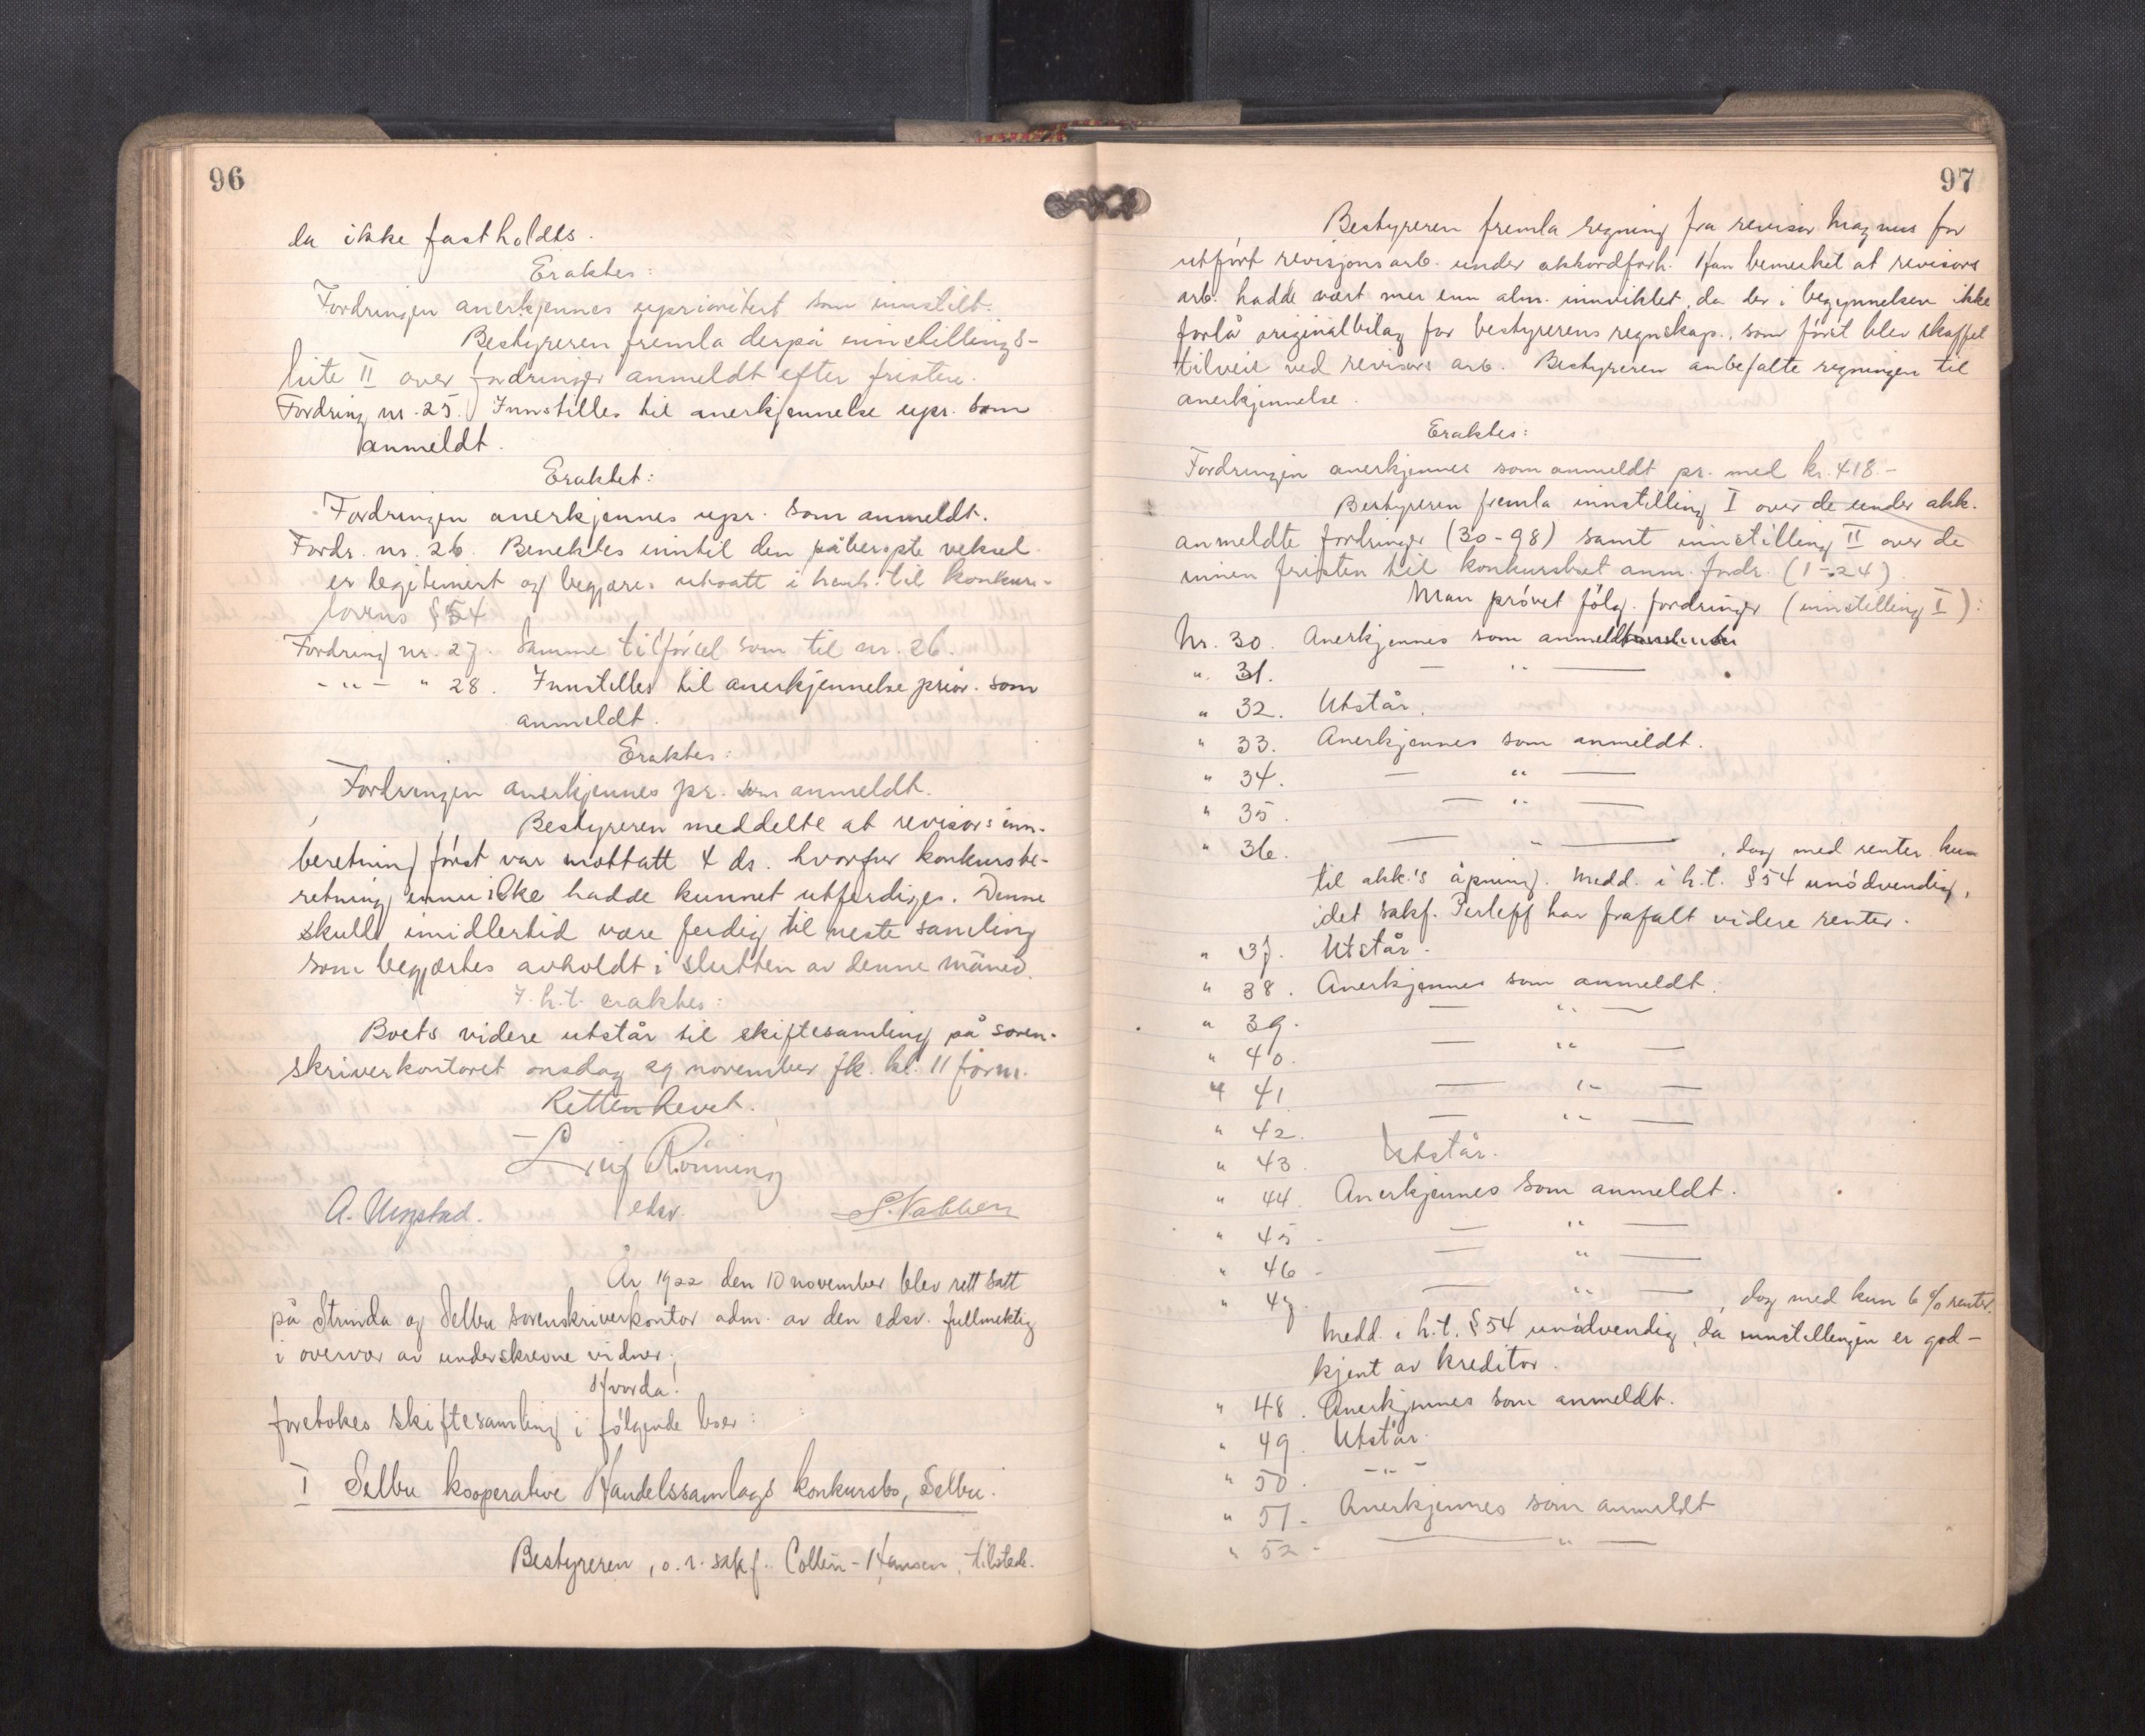 96
da ikke fastholdes.
Eraktes:
Fordringen anerkjennes uprioritert som innstilt.
Bestyreren fremla derpå innstillings-
liste II over fordringer anmeldt efter fristen.
Fordring nr. 25. Innstilles til anerkjennelse upr. som
anmeldt.
Eraktet:
Fordringen anerkjennes upr. som anmeldt.
Fordr. nr. 26. Benektes inntil den påberopte veksel
er legitimert og begjæres utsatt i henh. til konkurs-
lovens § 54
Fordring nr. 27. Samme tilførsel som til nr. 26.
- " - " 28. Innstilles til anerkjennelse prior. som
anmeldt.
Eraktes:
Fordringen anerkjennes pr. som anmeldt.
Bestyreren meddelte at revisors inn-
beretning først var mottatt 4 ds. hvorfor konkursbe-
retning ennu ikke hadde kunnet utferdiges. Denne
skulle imidlertid være ferdig til neste samling
som begjærtes avholdt i slutten av denne måned.
I h.t. eraktes:
Boets videre utstår til skiftesamling på soren-
skriverkontoret onsdag 29 november fk. kl. 11 form.
Retten hevet.
Leif Rønning
A. Ungstad. edsv. S. Nabben
År 1922 den 10 november blev rett satt
på Strinda og Selbu sorenskriverkontor adm. av den edsv. fullmektig
i overvær av underskrevne vidner;
Hvorda!
foretokes skiftesamling i følgende boer:
I Selbu kooperative Handelssamlags konkursbo, Selbu.
Bestyreren, o.r.sakf. Collin-Hansen, tilstede.
97
Bestyreren fremla regning fra revisor Magnus for
utført revisjonsarb. under akkordforh. Han bemerket at revisors
arb. hadde vært mer enn alm. innviklet, da der i begynnelsen ikke
forlå originalbilag for bestyrerens regnskap, som først blev skaffet
tilveie ved revisors arb. Bestyreren anbefalte regningen til
anerkjennelse.
Eraktes:
Fordringen anerkjennes som anmeldt pr. med kr. 418.-
Bestyreren fremla innstilling I over de under akk.
anmeldte fordringer (30-98) samt innstilling II over de
innen fristen til konkursboet anm. fordr. (1-24)
Man prøvet følg. fordringer (innstilling I):
Nr. 30. Anerkjennes som anmeldt
" 31. — " —
" 32. Utstår.
" 33. Anerkjennes som anmeldt.
" 34. — " —
" 35. — " —
" 36. — " —, dog med renter kun
til akk.'s åpning. Medd. i h.t. § 54 unødvendig,
idet sakf. Perleff har frafalt videre renter.
" 37. Utstår.
" 38. Anerkjennes som anmeldt.
" 39. — " —
" 40. — " —
" 41 — " —
" 42. — " —
" 43. Utstår.
" 44. Anerkjennes som anmeldt.
" 45 - — " —
" 46 - — " —
" 47. — " —, dog med kun 6 % renter.
Medd. i h.t. § 54 unødvendig, da innstillingen er god-
kjent av kreditor.
" 48. Anerkjennes som anmeldt.
" 49. Utstår.
" 50. - " -
" 51 - Anerkjennes som anmeldt
" 52 - — " —